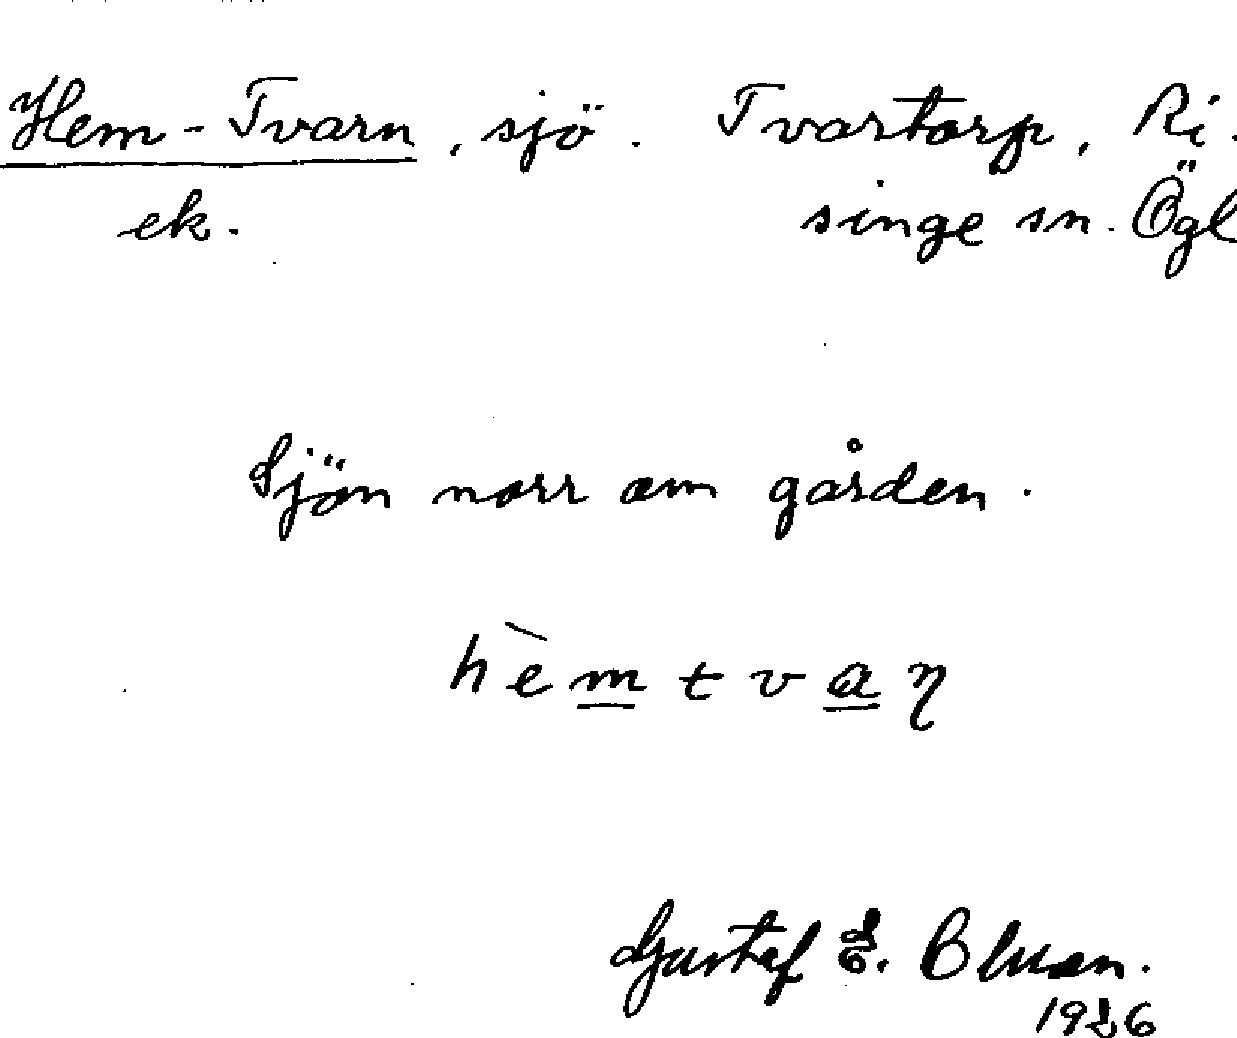 Hem-Tvarn, sjö. Tvartorp, Ri-
ek. singe sn. Ögl
Sjön norr om gården.
hèmtvaη
Gustaf E.
1926